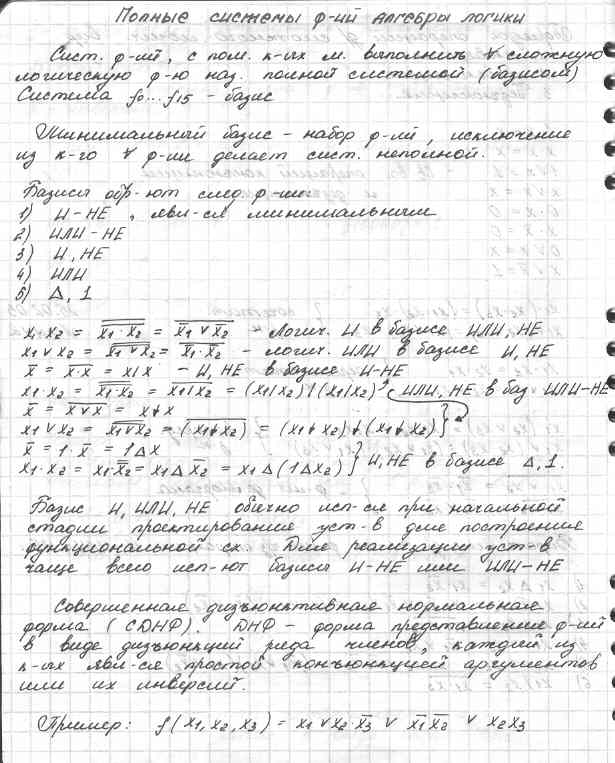 Полные системы ф-ий алгебры логики
Сист. ф-ий, с пом. к-ых м. выполнить ∀ сложную
логическую ф-ю наз. полной системой (базисом)
Система f₀...f₁₅ - базис
Минимальный базис - набор ф-ий, исключение
из к-го ∀ ф-ии делает сист. неполной.
Базисы обр-ют след. ф-ии:
1) И-НЕ, явл-ся минимальным
2) ИЛИ-НЕ
3) И, НЕ
4) ИЛИ
5) Δ, 1
x₁·x₂ = \overline{\overline{x₁·x₂}} = \overline{x̄₁ ∨ x̄₂} - логич. И в базисе ИЛИ, НЕ
x₁∨x₂ = \overline{\overline{x₁∨x₂}} = \overline{x̄₁·x̄₂} - логич. ИЛИ в базисе И, НЕ
x̄ = \overline{x·x} = x|x - И, НЕ в базисе И-НЕ
x₁·x₂ = \overline{\overline{x₁·x₂}} = \overline{x₁|x₂} = (x₁|x₂)|(x₁|x₂) ИЛИ, НЕ в баз ИЛИ-НЕ
x̄ = \overline{x∨x} = x↓x
x₁∨x₂ = \overline{\overline{x₁∨x₂}} = \overline{(x₁↓x₂)} = (x₁↓x₂)↓(x₁↓x₂)
x̄ = 1·x̄ = 1Δx
x₁·x₂ = x₁·\overline{x̄₂} = x₁Δx̄₂ = x₁Δ(1Δx₂) } И, НЕ в базисе Δ, 1.
Базис И, ИЛИ, НЕ обычно исп-ся при начальной
стадии проектирования уст-в для построения
функциональной сх. Для реализации уст-в
чаще всего исп-ют базисы И-НЕ или ИЛИ-НЕ
Совершенная дизъюнктивная нормальная
форма (СДНФ). ДНФ - форма представления ф-ий
в виде дизъюнкций ряда членов, каждый из
к-ых явл-ся простой конъюнкцией аргументов
или их инверсий.
Пример: f(x₁, x₂, x₃) = x₁ ∨ x₂·x̄₃ ∨ x̄₁x̄₂ ∨ x₂x₃